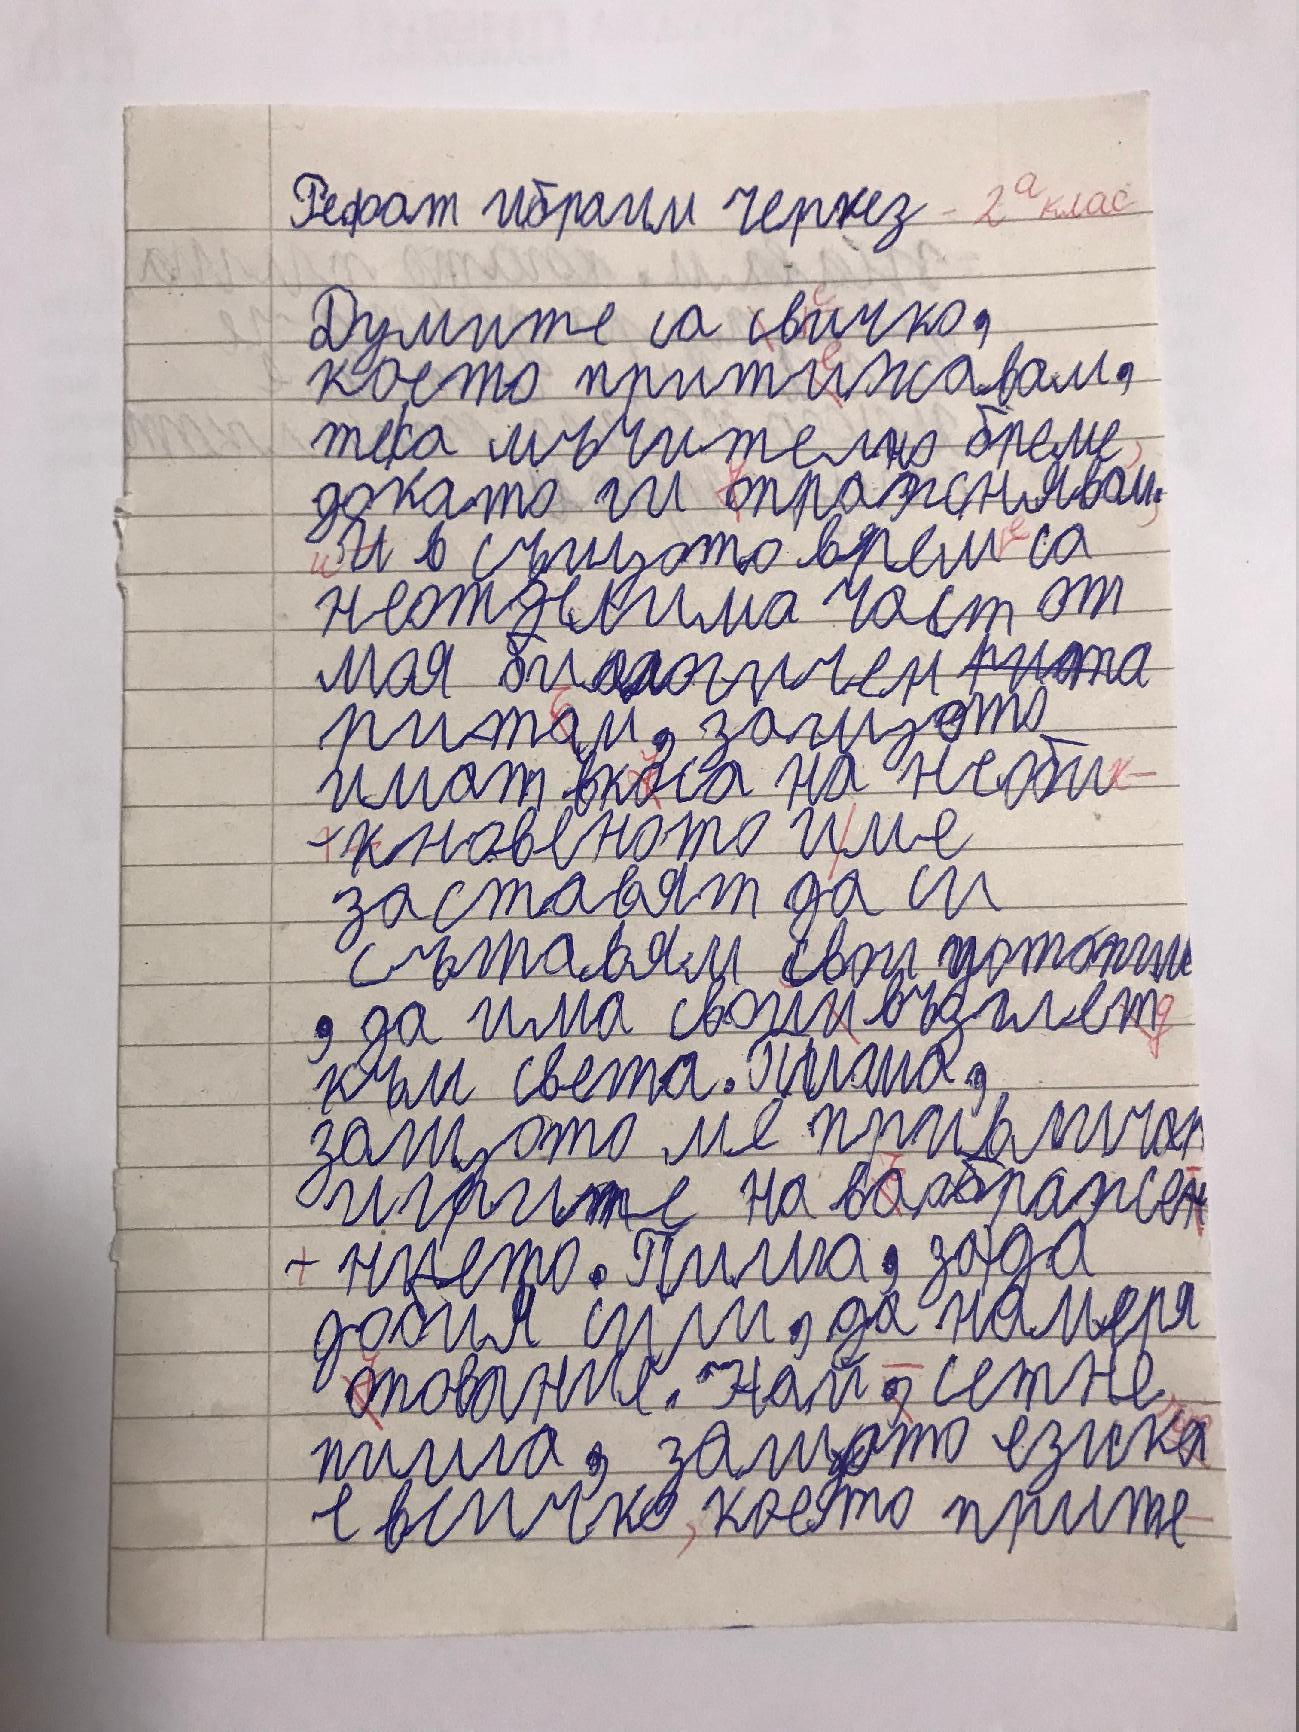 Рефат Ибраим Черкез - 2а клас
Думите са свичко,
което притижавам,
теса мъчително бреме,
докато ги опражснявам.
И в същото време са
неотделима част от
моя биологичен
ритам, защото
имат вкоса на необи
- кновеното име
заставят да си
съставям свои
, да има свой възглет
към света. Пиша,
защото ме привличат
игрите на
- нието. Пиша, зада
добия сили, да намеря
опование. Най, сетне
пиша, защото езика
е всичко, което прите-